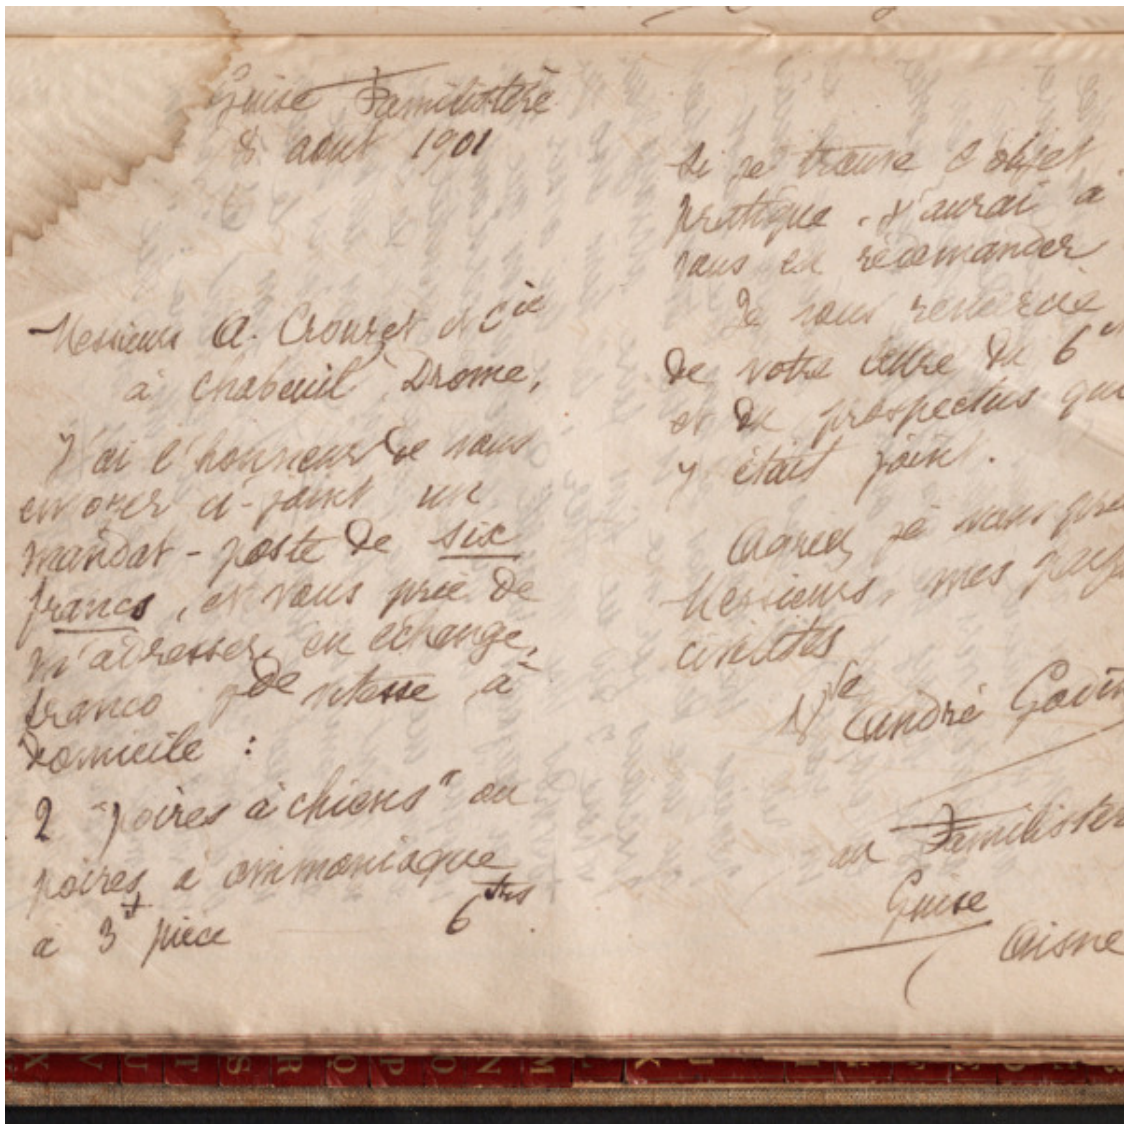 Guise Familistère
8 août 1901
Messieurs A. Crouzet et Cie
à Chabeuil, Drome,
J'ai l'honneur de vous
envoyer ci-joint un
mandat-poste de six
francs, et vous prie de
m'adresser, en échange,
franco gde vitesse à
domicile :
2 "poires à chiens" ou
poires à ammoniaque
à 3f pièce 6frs
si je trouve l'objet
pratique. J'aurai à
vous en recomander
Je vous remercie
de votre lettre du 6
et du prospectus qui
y était joint.
Agréez, je vous prie
Messieurs, mes
civilités
Vve André Godin
au Familistère
Guise
Aisne
X V U T S R Q P O N M